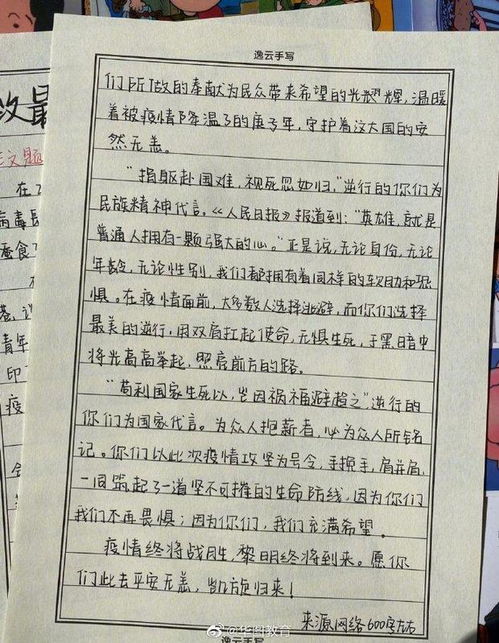 逸云手写
们所做的奉献为民众带来希望的光耀辉,温暖
着被疫情降温了的庚子年,守护着这大国的安
然无恙。
"捐躯赴国难,视死忽如归,"逆行的你们为
民族精神代言。《人民日报》报道到:"英雄,就是
普通人拥有一颗强大的心。"正是说,无论身份,无论
年龄,无论性别,我们都拥有着同样的软肋和恐
惧。在疫情面前,大多数人选择逃避,而你们选择
最美的逆行,用双肩扛起使命,无惧生死,于黑暗中
将光高高举起,照亮前方的路。
"苟利国家生死以,岂因祸福避趋之"逆行的
你们为国家代言。为众人抱薪者,必为众人所铭
记。你们以此次疫情攻坚为号令,手挽手,肩并肩,
一同筑起了一道坚不可摧的生命防线,因为你们
我们不再畏惧;因为你们,我们充满希望。
疫情终将战胜,黎明终将到来。愿你
们此去平安无恙,凯旋归来!
来源网络600字左右
@华图教育
逸云手写
改最
文题
在
病毒
蚕食了
青年
印
疫